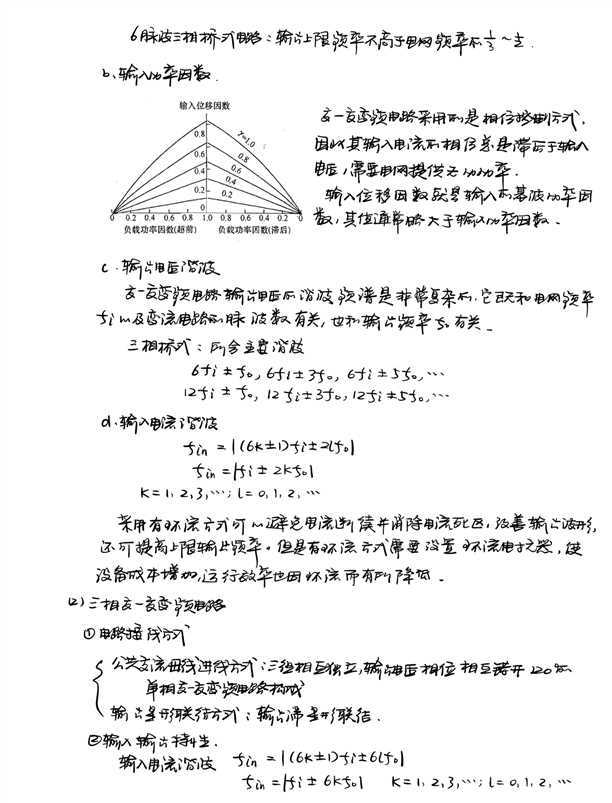 6脉波三相桥式电路：输出上限频率不高于电网频率的1/3～1/2.
b.输入功率因数.
输入位移因数
0.8
0.6
0.4
0.2
0
γ=1.0
0.8
0.6
0.4
0.2
0 0.2 0.4 0.6 0.8 1.0 0.8 0.6 0.4 0.2 0
负载功率因数(超前) 负载功率因数(滞后)
交-交变频电路采用的是相位控制方式，
因此其输入电流的相位总是滞后于输入
电压，需要电网提供无功功率.
输入位移因数就是输入的基波功率因
数，其值通常略大于输入功率因数.
c.输出电压谐波
交-交变频电路输出电压的谐波频谱是非常复杂的，它既和电网频率
fi以及变流电路的脉波数有关，也和输出频率fo有关.
三相桥式：所含主要谐波
6fi±fo, 6fi±3fo, 6fi±5fo, …
12fi±fo, 12fi±3fo, 12fi±5fo, …
d.输入电流谐波
fin=|(6k±1)fi±2lfo|
fin=|fi±2kfo|
k=1,2,3,…; l=0,1,2,…
采用有环流方式可以避免电流断续并消除电流死区，改善输出波形，
还可提高上限输出频率。但是有环流方式需要设置环流电抗器，使
设备成本增加，运行效率也因环流而有所降低.
(2)三相交-交变频电路
①电路接线方式
公共交流母线进线方式：三组相互独立，输出电压相位相互错开120°的
单相交-交变频电路构成
输出星形联结方式：输出端星形联结.
②输入输出特性.
输入电流谐波 fin=|(6k±1)fi±6lfo|
fin=|fi±6kfo| k=1,2,3,…; l=0,1,2,…